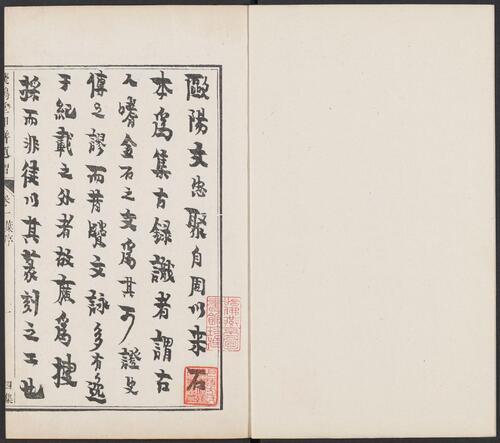 歐陽文忠聚自周以来石
本為集古録識者謂古
人嗜金石之文為其可證史
傳之謬而昔賢文詠多有逸
于紀載之外者故廣為搜
採而非徒以其篆刻之工也
卷一
序
四集